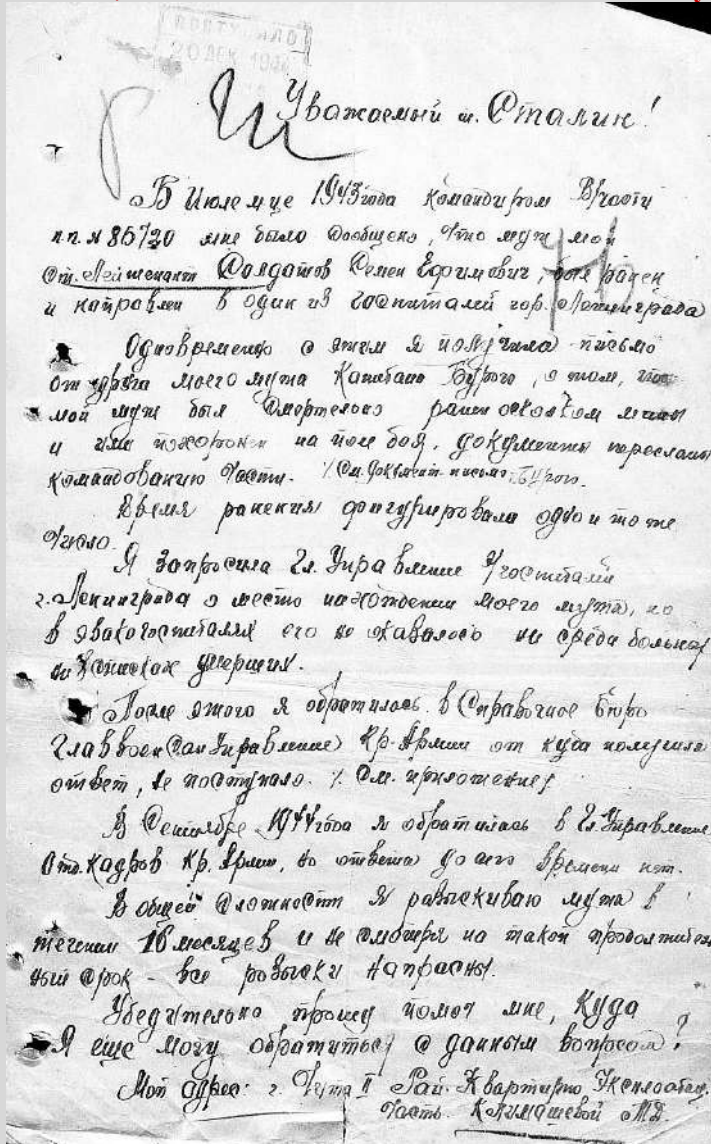 20 ДЕК 194
Уважаемый т. Сталин!
В Июле м-це 1943 года командиром В/части
п.п. № 85720 мне было сообщено, что муж мой
Ст. Лейтенант Солдатов Семен Ефимович, был ранен
и направлен в один из госпиталей гор. Ленинграда
Одновременно с этим я получила письмо
от друга моего мужа Капитана Бурого, о том, что
мой муж был смертельно ранен осколком мины
и ими похоронен на поле боя, документы пересланы
командованию части. /См. документ-письмо Бурого.
Время ранения фигурировала одно и то же
число.
Я запросила Гл. Управление Э/госпиталей
г. Ленинграда о место нахождении моего мужа, но
в эвакогоспиталях его не оказалось ни среди больных
ни в списках умерших.
После этого я обратилась в Справочное бюро
Главвоенсануправление Кр. Армии от куда получила
ответ, не поступало. /См. приложение/
В Сентябре 1944 года я обратилась в Гл. Управление
Отд. кадров Кр. Армии, но ответа до сего времени нет.
В общей сложности я разыскиваю мужа в
течении 16 месяцев и не смотря на такой продолжитель
ный срок - все розыски напрасны.
Убедительно прошу помоч мне, куда
Я еще могу обратиться с данным вопросом?
Мой адрес: г. Чита II Рай. Квартирно Эксплоатац.
Часть. Климашевой М.Д.